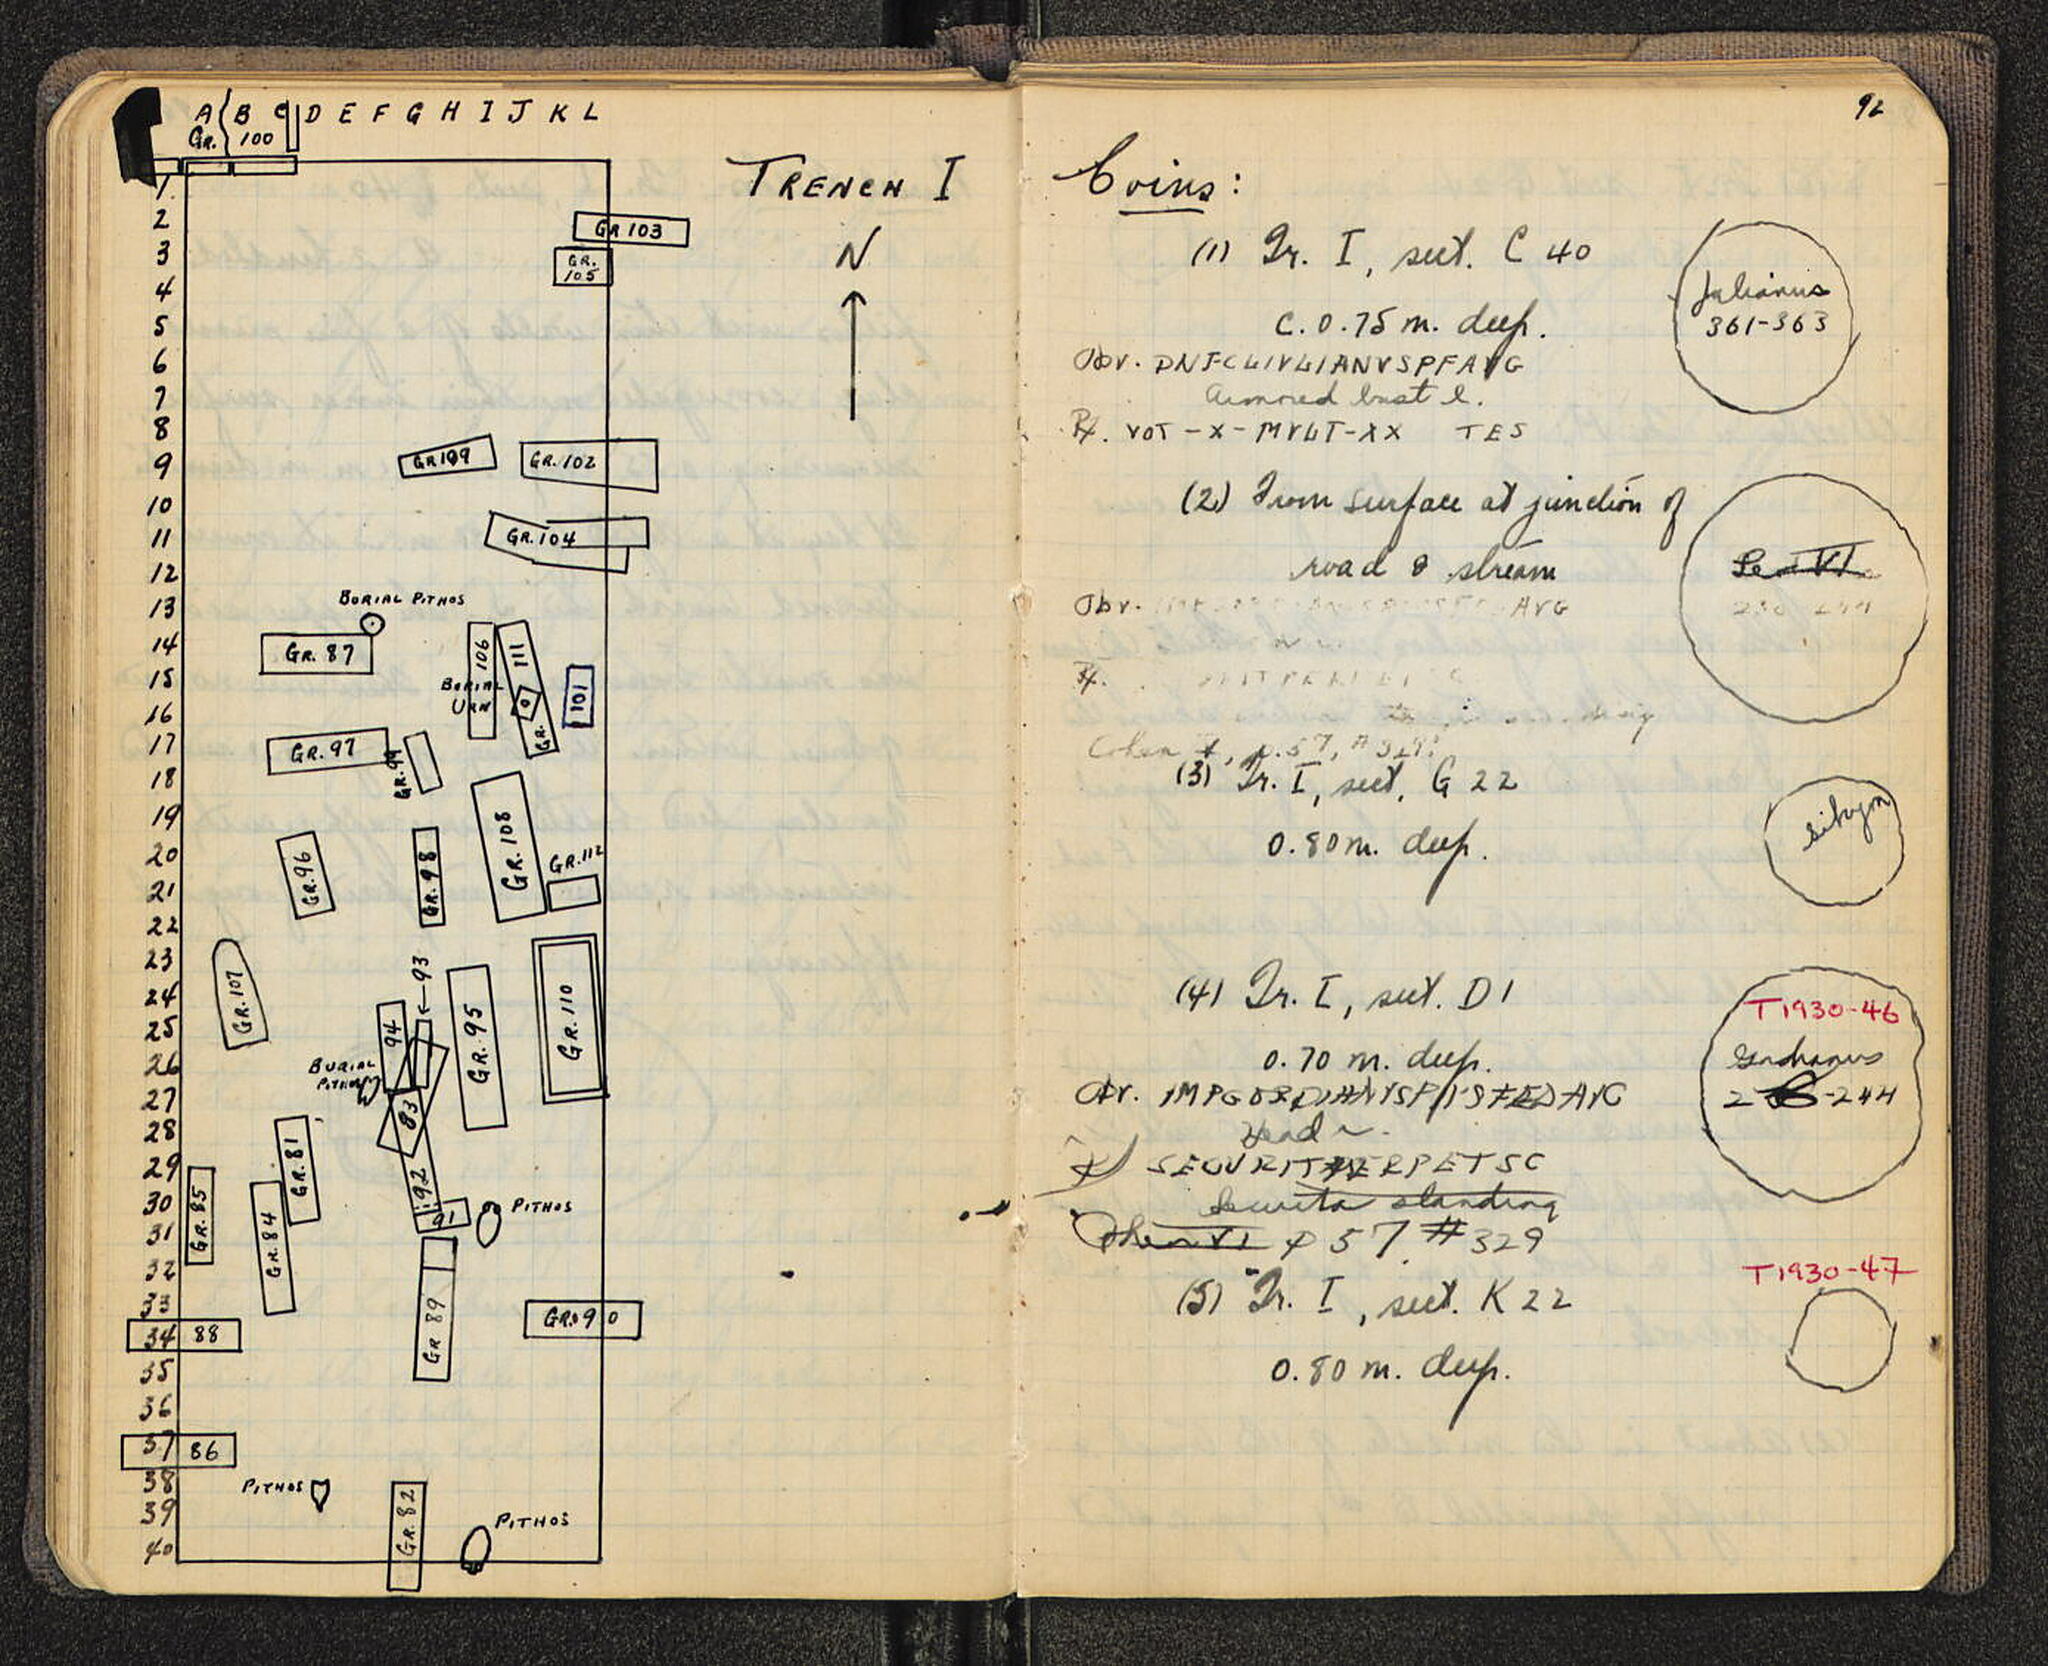 A B C D E F G H I J K L
GR. 100
TRENCH I
N
1
2
GR 103
3
GR. 105
4
5
6
7
8
9
GR 109
GR. 102
10
11
GR. 104
12
13
BURIAL PITHOS
14
GR. 87
106
111
15
BURIAL URN
101
16
GR.
17
GR. 97
GR. 99
18
19
GR. 108
20
GR. 96
GR. 98
GR. 112
21
22
23
93
24
GR. 107
94
GR. 95
GR. 110
25
26
BURIAL
27
83
28
GR. 81
29
92
30
GR. 85
91
PITHOS
31
GR. 84
32
33
GR 89
GR. 90
34 88
35
36
37 86
38
PITHOS
39
GR. 82
PITHOS
40
92
Coins:
(1) Tr. I, sect. C 40
c. 0.75 m. deep.
Julianus
361-363
Obv. DNFCLIVLIANVSPFAVG
Armored bust l.
R. VOT-X-MVLT-XX TES
(2) From surface at junction of
road & stream
Obv. AVG
R.
Cohen p. 57, # 329
(3) Tr. I, sect. G 22
0.80 m. deep.
Sikyon
(4) Tr. I, sect. D 1
0.70 m. deep.
T1930-46
Gordianus
-244
Obv. IMPGORDIANVSPIVSFEDAVG
Head r.
SECVRITPERPETSC
Securitas standing
Cohen VI p 57 # 329
(5) Tr. I, sect. K 22
0.80 m. deep.
T1930-47